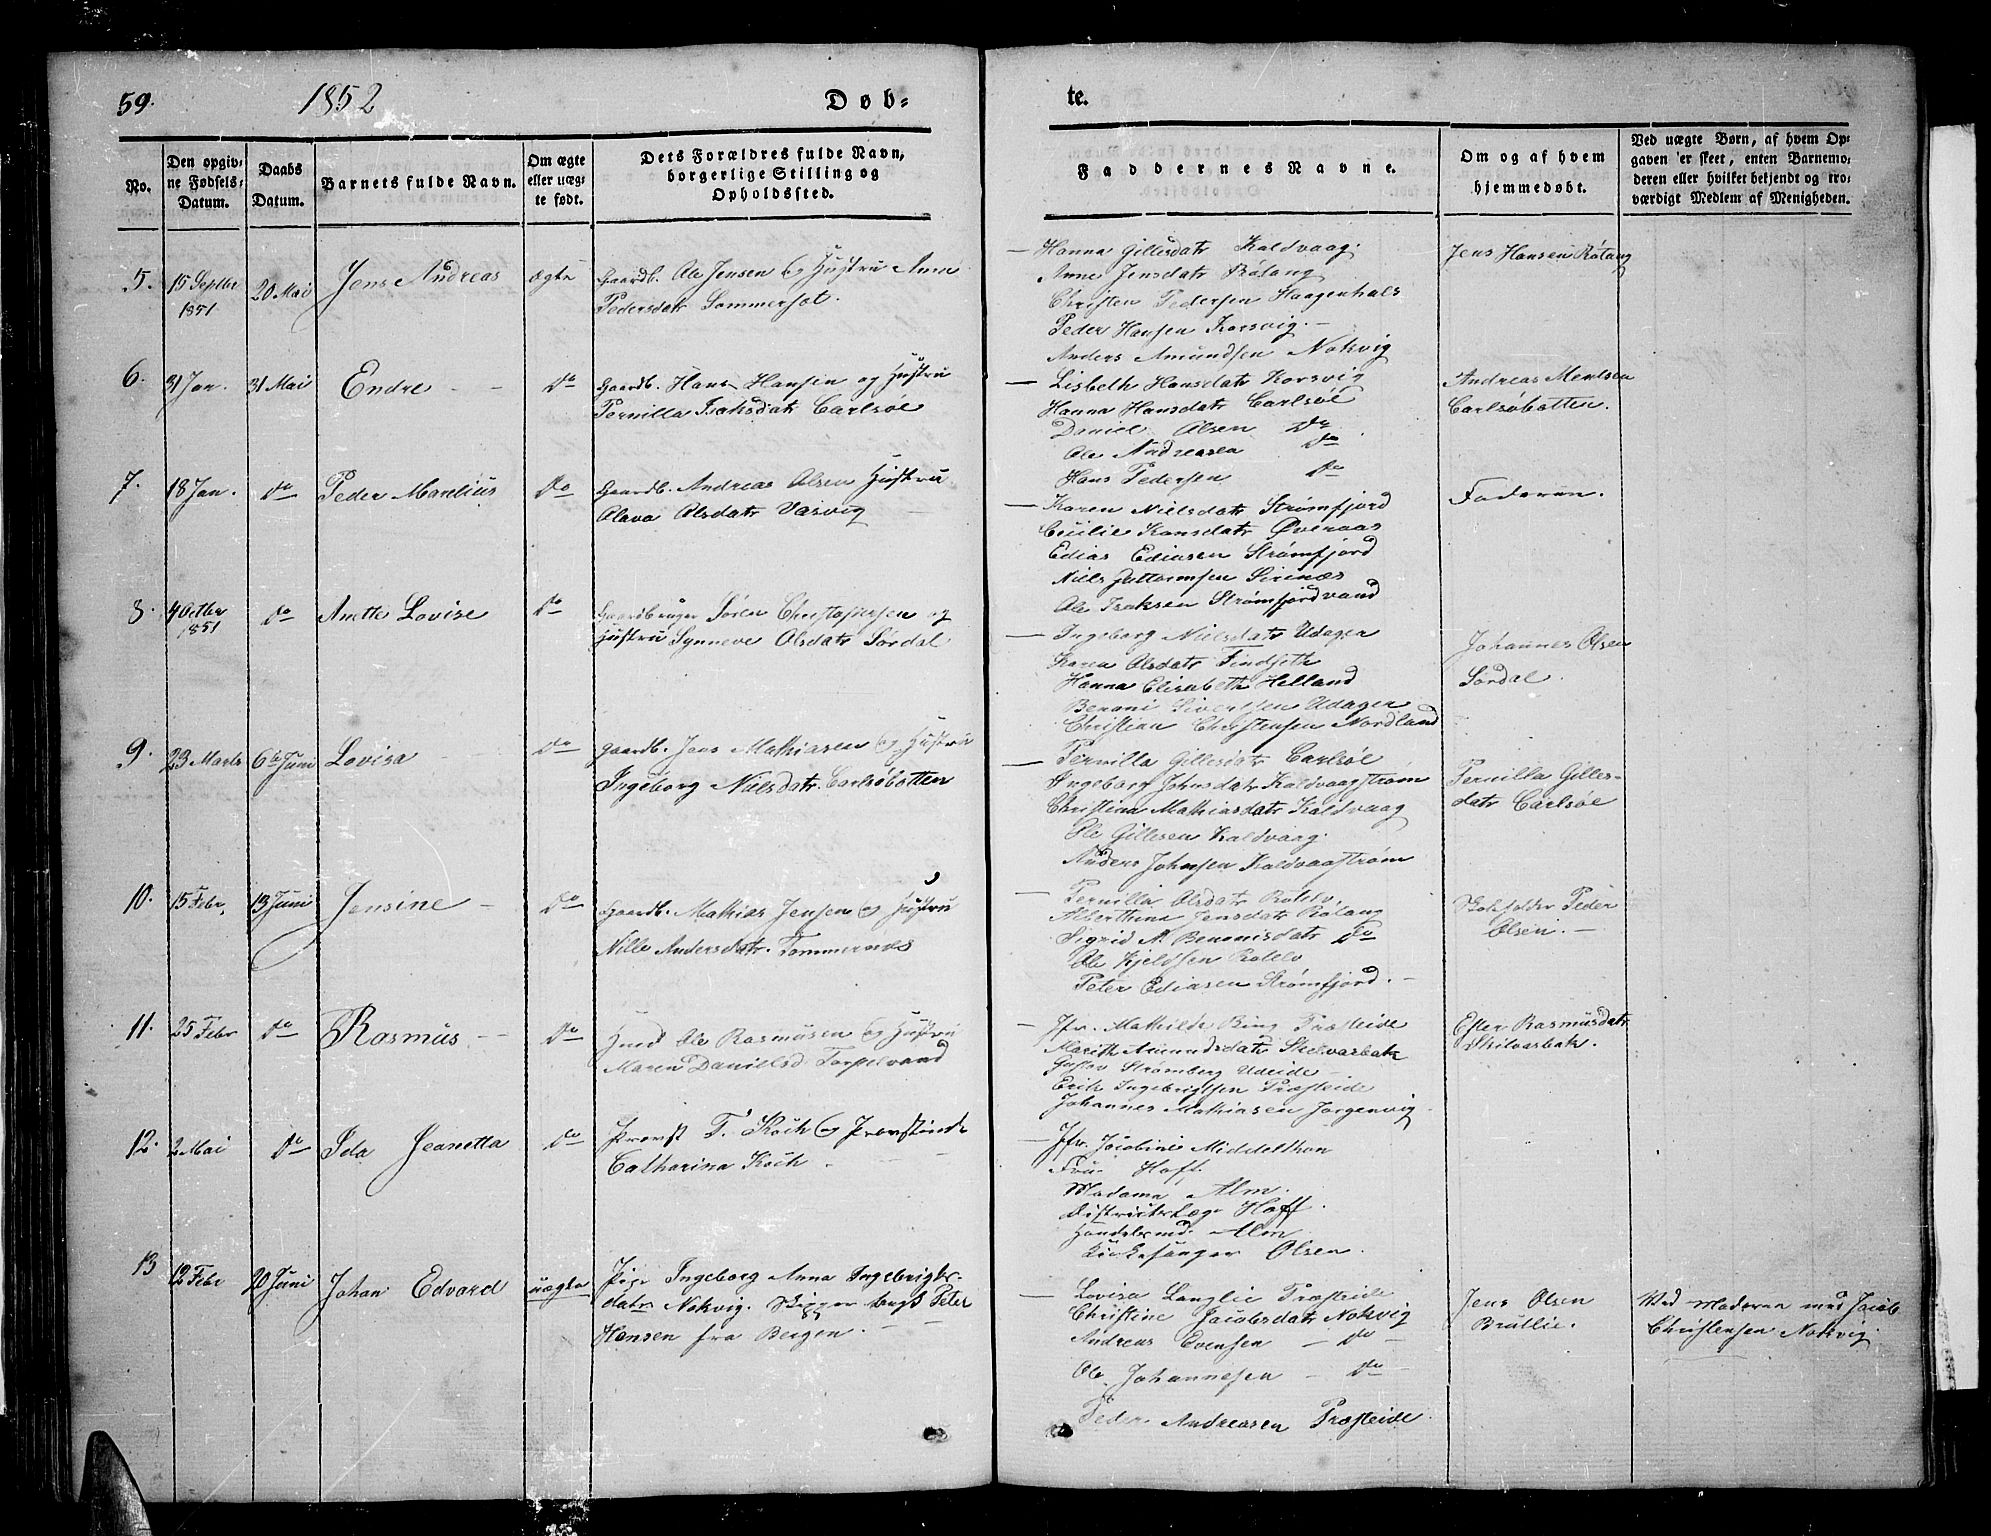 59.
1852
Døb-
te.
No.
Den opgiv-
ne Fødsels-
Datum.
Daabs
Datum.
Barnets fulde Navn.
Om ægte
eller uæg-
te født.
Dets Forældres fulde Navn,
borgerlige Stilling og
Opholdssted.
Faddernes Navne.
Om og af hvem
hjemmedøbt.
Ved uægte Børn, af hvem Op-
gaven er skeet, enten Barnemo-
deren eller hvilket bekjendt og tro-
værdigt Medlem af Menigheden.
5.
15 Septbr
1851
20 Mai
Jens Andreas
ægte
Gaardb. Ole Jensen og Hustru Anne
Pedersdatr Sommerset.
— Hanna Gillesdatr Kaldvaag.
Anne Jensdatr Rötang
Christen Pedersen Haagenhals
Peder Hansen Korsvig. —
Anders Amundsen Nokvig
Jens Hansen Rötang
6.
31 Jan.
31 Mai
Endre
do
Gaardb. Hans Hansen og Hustru
Pernilla Isaksdatr Carlsöe
— Lisbeth Hansdatr Korsvig
Hanna Hansdatr Carlsöe
Daniel Olsen do
Ole Andreasen do
Hans Pedersen do
Andreas Mentsen
Carlsöbotten.
7.
18 Jan.
do
Peder Marelius
do
Gaardb. Andreas Olsen Hustru
Olava Olsdatr Vasvig
— Karen Nielsdatr Strømfjord
Cecilie Hansdatr Øveraas
Edias Ediasen Strømfjord
Niels Guttormsen Sirenæs
Ole Isaksen Strømfjordvand
Faderen.
8.
4 Octbr
1851
do
Anette Lovise
do
Gaardbruger Sören Christophersen og
Hustru Synneve Olsdatr Sördal
— Ingeborg Nielsdatr Udager
Karen Olsdatr Findseth
Hanna Elisabeth Helland
Beroni Sivertsen Udager
Christian Christensen Nordland
Johannes Olsen
Sördal.
9.
23 Marts
6te Juni
Lovisa
do
Gaardb. Jens Mathiasen og Hustru
Ingeborg Nielsdatr. Carlsöbotten
— Pernilla Gillesdatr Carlsöe
Ingeborg Johnsdatr Kaldvaagstrøm
Christina Mathiasdatr Kaldvaag
Ole Gillesen Kaldvaag.
Anders Johnsen Kaldvaagstrøm
Pernilla Gilles-
datr Carlsöe
10.
15 Febr.
13 Juni
Jensine
do
Gaardb. Mathias Jensen og Hustru
Nille Andersdatr. Tommernæs
— Pernilla Olsdatr Rotelv.
Alberthina Jensdatr Rötang
Sigrid M. Benonisdatr do
Ole Kjeldsen Rotelv
Peter Ediasen Strømfjord. —
Peder
Olsen. —
11.
25 Febr
do
Rasmus
do
Ole Rasmusen og Hustru
Maren Danielsd. Torpelvand
— Jfr. Mathilde Bing Præsteide
Marith Amundsdatr Skilvasbak
Gustav Strømberg Udeide
Erik Ingebrigtsen Præsteide
Johannes Mathiasen Jorgenvig
Ester Rasmusdatr
Skilvasbak.
12.
2 Mai
do
Ida Jeanetta
do
Provst T. Koch og Provstinde
Catharina Koch.
— Jfr. Jacobine Middelthon
Fru Hoff.
Madame Alm.
Districtslæge Hoff.
Handelsmd. Alm
Kirkesanger Olsen.
13
12 Febr
20 Juni
Johan Edvard
uægte
Pige Ingeborg Anna Ingebrigts-
datr Nokvig. Skipper Peter
Hansen fra Bergen.
— Lovisa Langlie Præsteide
Christine Jacobsdatr Nokvig
Andreas Evensen — do —
Ole Johannesen — do
Peder Andreasen Præsteide.
Jens Olsen
Bratlie.
Ved Moderen med Jacob
Christensen Nokvig